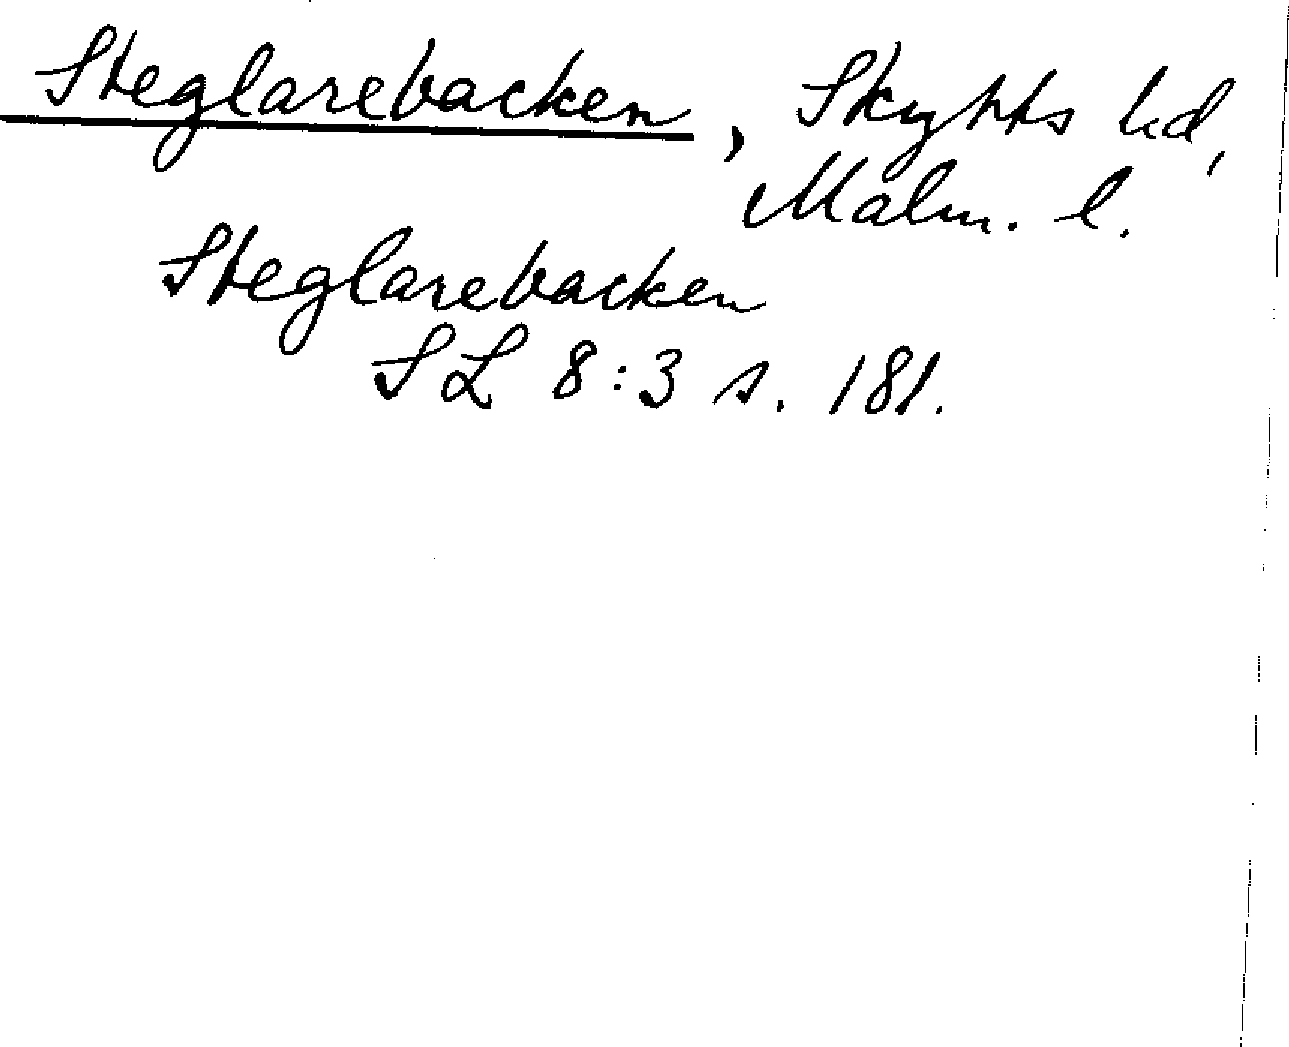 Steglarebacken, Skytts hd,
Malm. l.
Steglarebacken
SL 8:3 s. 181.